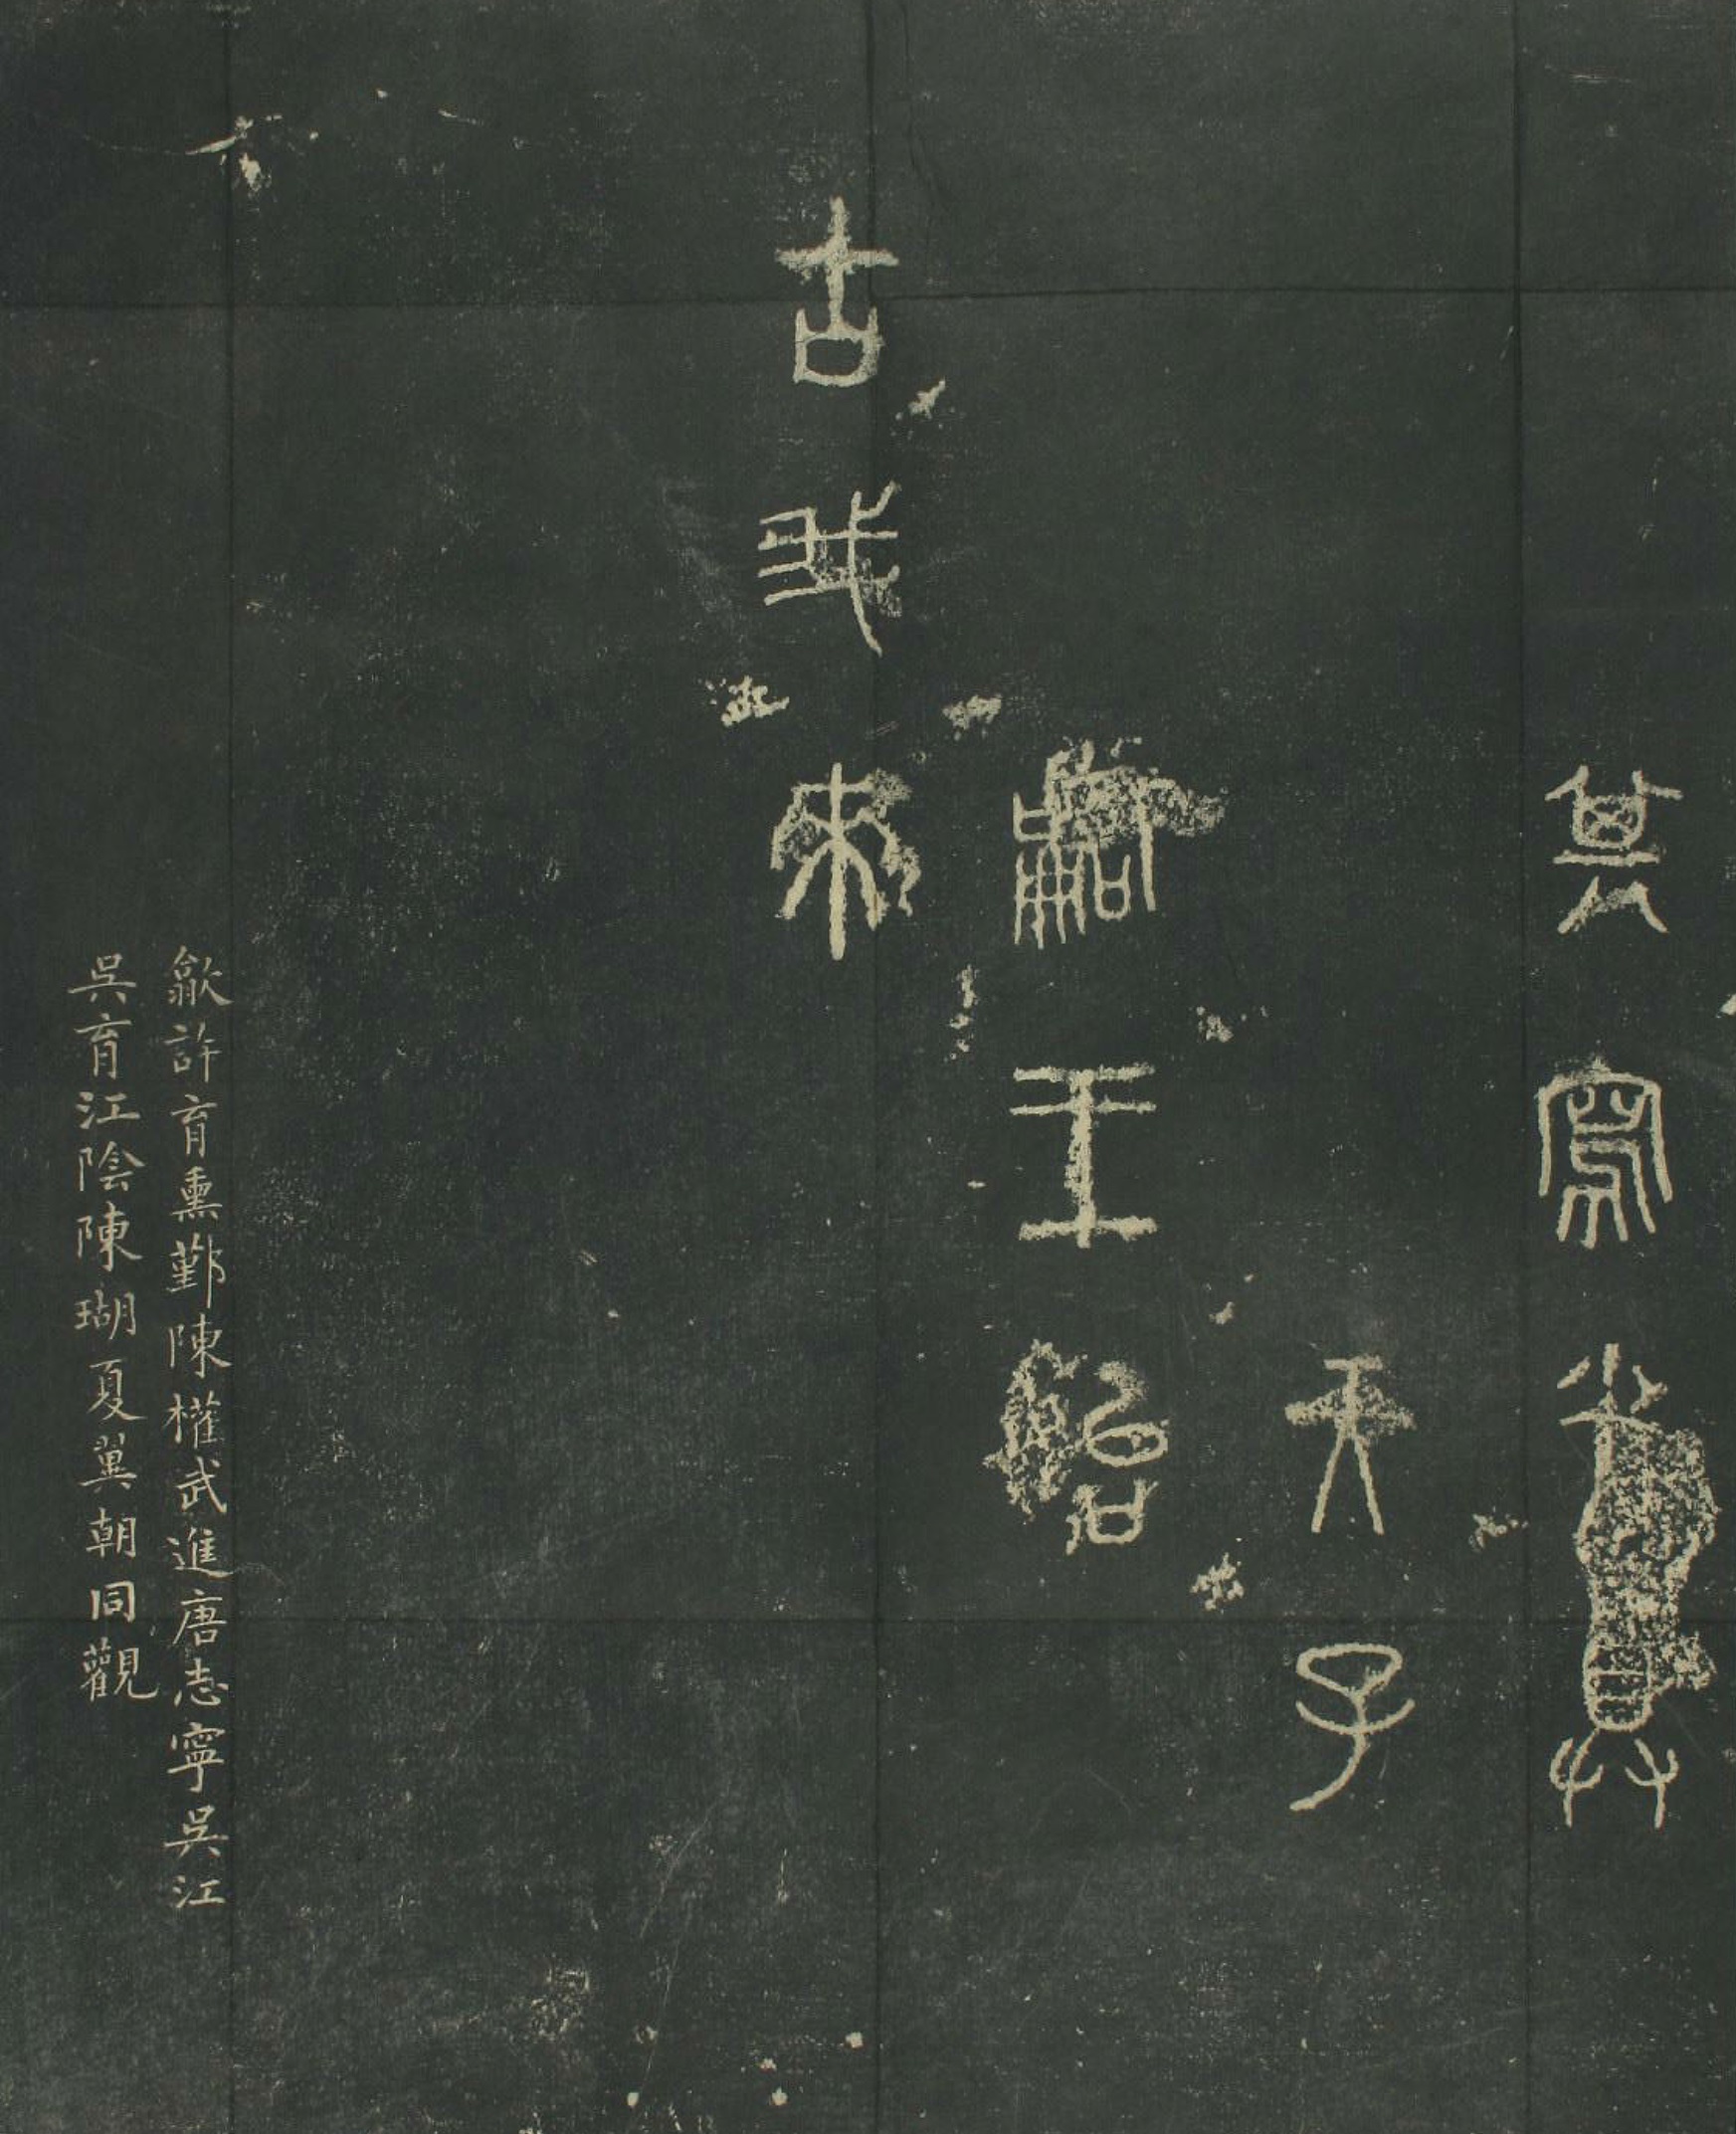 其寫小大具
天子
嗣王始
古我來
歙許育熏鄞陳權武進唐志寧吳江
吳育江陰陳瑚夏翼朝同觀